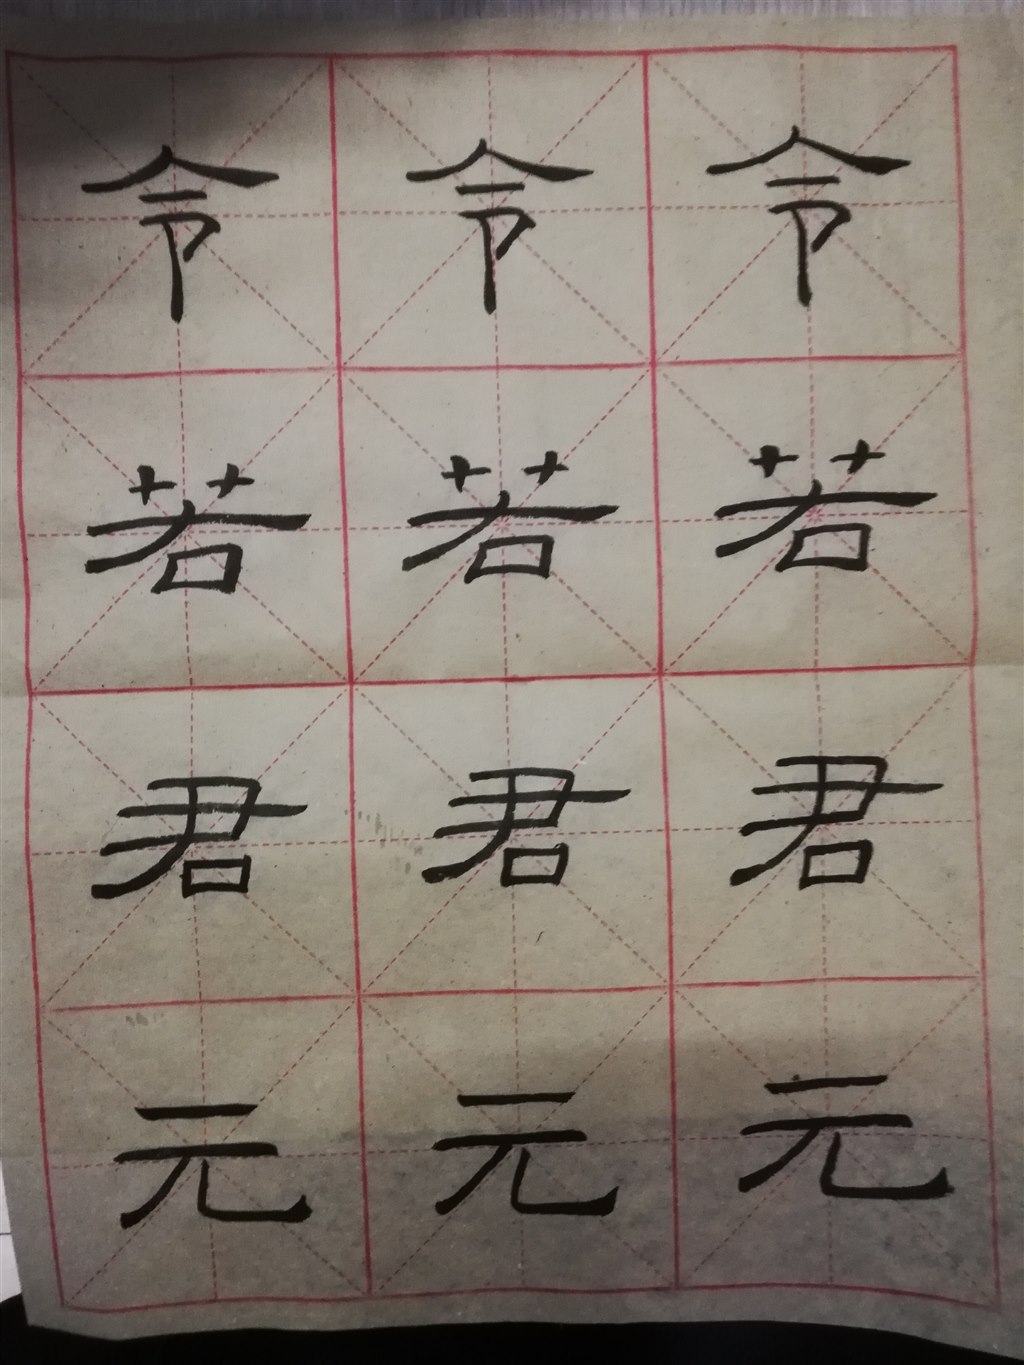 令令令
若若若
君君君
元元元